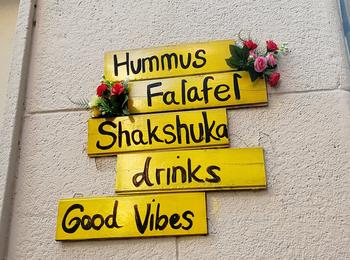 Hummus
Falafel
Shakshuka
drinks
Good Vibes